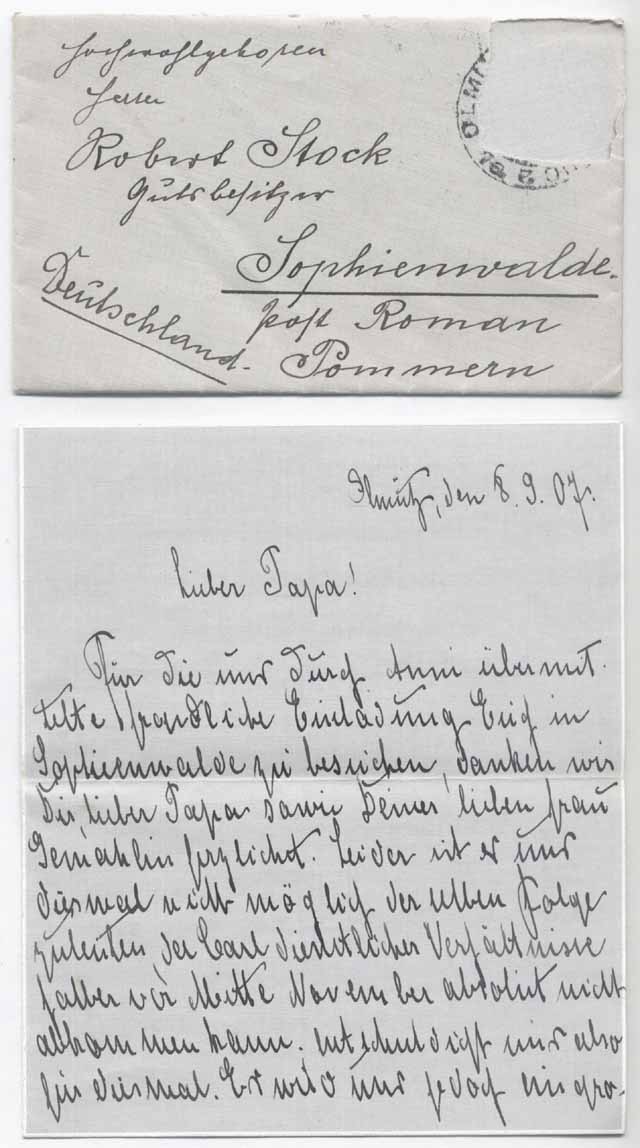 Hochwohlgeboren
Herrn
Robert Stock
Gutsbesitzer
Sophienwalde.
Deutschland.
post Roman
Pommern
OLMÜ
Olmütz, den 8. 9. 07.
Lieber Papa!
Für die uns durch Anni übermit-
telte freundliche Einladung Euch in
Sophienwalde zu besuchen, danken wir
Dir, lieber Papa sowie Deiner lieben Frau
Gemahlin herzlichst. Leider ist es uns
diesmal nicht möglich derselben Folge
zuleisten da Carl dienstlicher Verhältnisse
halber vor Mitte November absolut nicht
abkommen kann. Entschuldigt uns also
für diesmal. Es wird uns jedoch ein gro-